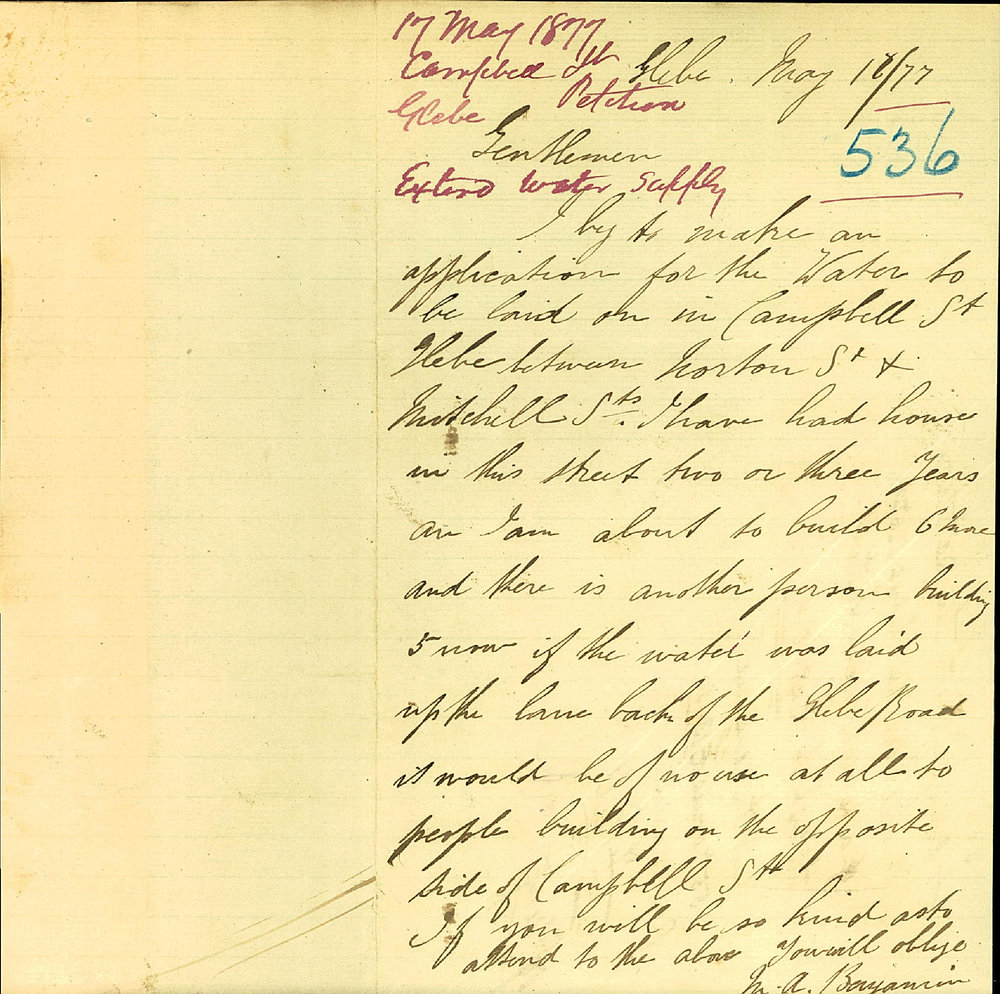 17 May 1877
Campbell St Glebe. May 18/77
Glebe Petition
536
Gentlemen
Extend Water Supply
I beg to make an
application for the Water to
be laid on in Campbell St
Glebe between Norton St &
Mitchell Sts. I have had house
in this street two or three Years
an I am about to build 6 more
and there is another person building
5 now if the water was laid
up the lane back of the Glebe Road
it would be of no use at all to
people building on the opposite
side of Campbell St
If you will be so kind as to
attend to the above You will oblige
M. A. Benjamin